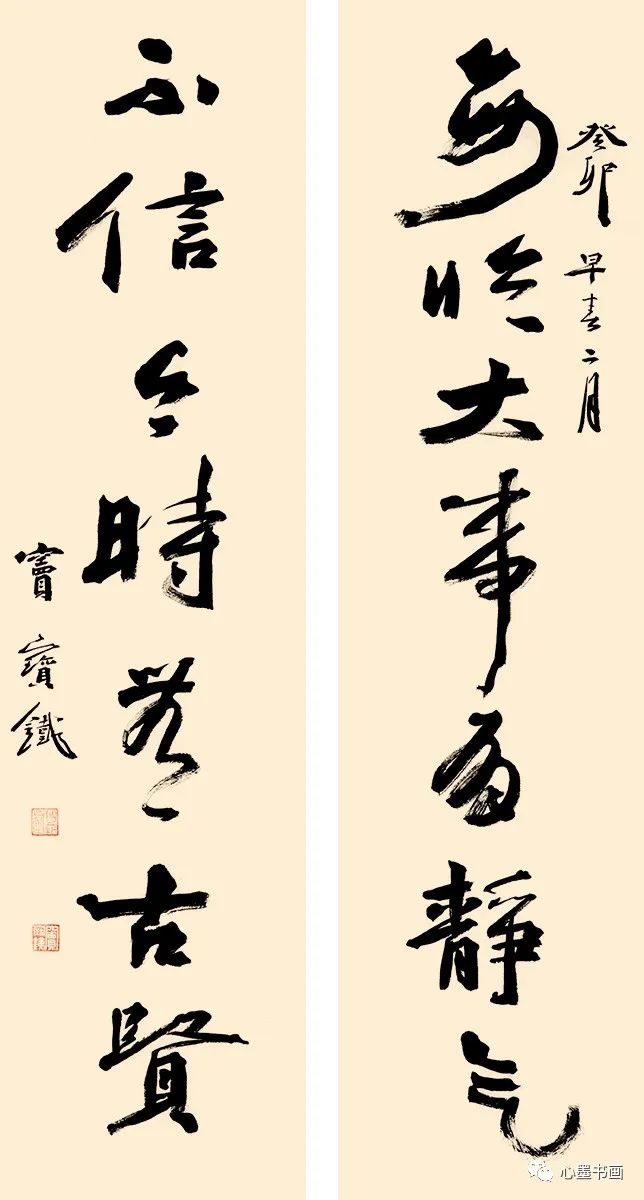 癸卯 早春二月
每临大事有靜气
不信今時無古賢
竇寶鐵
心墨书画